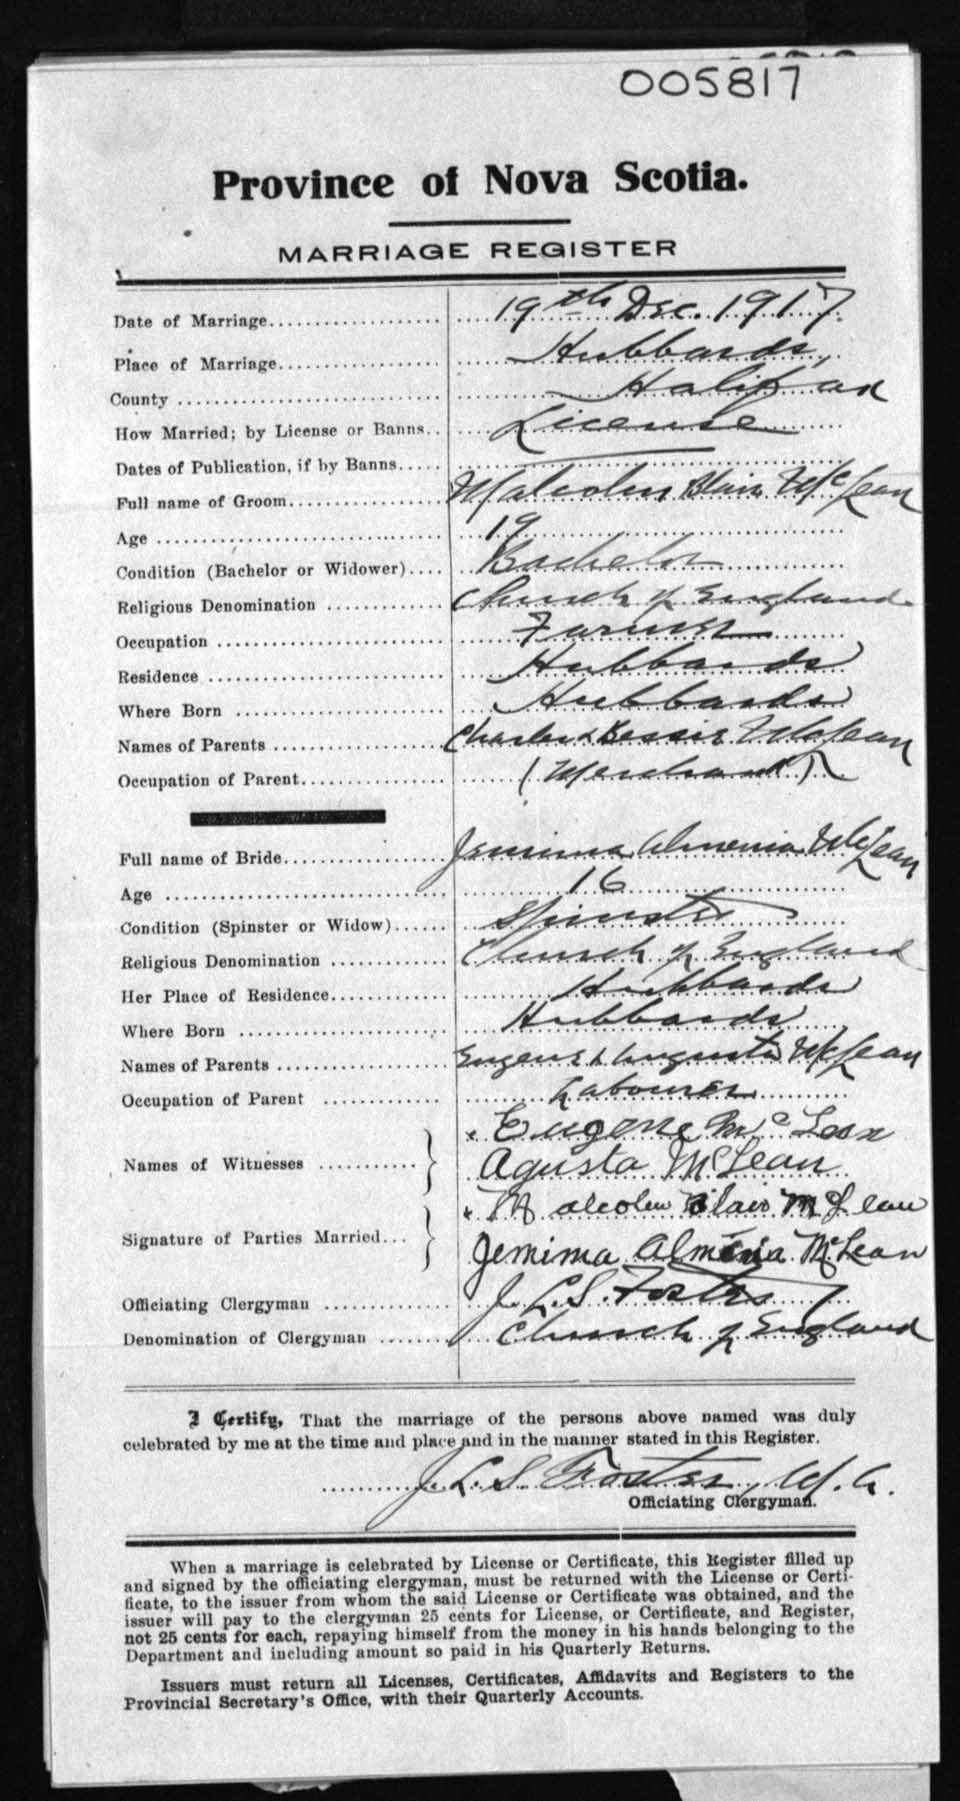 005817
Province of Nova Scotia.
MARRIAGE REGISTER
Date of Marriage 19th Dec. 1917.
Place of Marriage Hubbards,
County Halifax
How Married; by License or Banns License
Dates of Publication, if by Banns
Full name of Groom Malcolm Blair McLean
Age 19
Condition (Bachelor or Widower) Bachelor
Religious Denomination Church of England
Occupation Farmer
Residence Hubbards
Where Born Hubbards
Names of Parents Charles & Bessie McLean
Occupation of Parent (Merchant)
Full name of Bride Jemima Almenia McLean
Age 16
Condition (Spinster or Widow) Spinster
Religious Denomination Church of England
Her Place of Residence Hubbards
Where Born Hubbards
Names of Parents Eugene & Augusta McLean
Occupation of Parent Labourer
Eugene McLean
Names of Witnesses Agusta McLean
Malcolm Blair McLean
Signature of Parties Married Jemima McLean
Officiating Clergyman J. L. S. Foster
Denomination of Clergyman Church of England
I Certify, That the marriage of the persons above named was duly
celebrated by me at the time and place and in the manner stated in this Register.
J. L. S. Foster, M. A.
Officiating Clergyman.
When a marriage is celebrated by License or Certificate, this Register filled up
and signed by the officiating clergyman, must be returned with the License or Certi-
ficate, to the issuer from whom the said License or Certificate was obtained, and the
issuer will pay to the clergyman 25 cents for License, or Certificate, and Register,
not 25 cents for each, repaying himself from the money in his hands belonging to the
Department and including amount so paid in his Quarterly Returns.
Issuers must return all Licenses, Certificates, Affidavits and Registers to the
Provincial Secretary's Office, with their Quarterly Accounts.